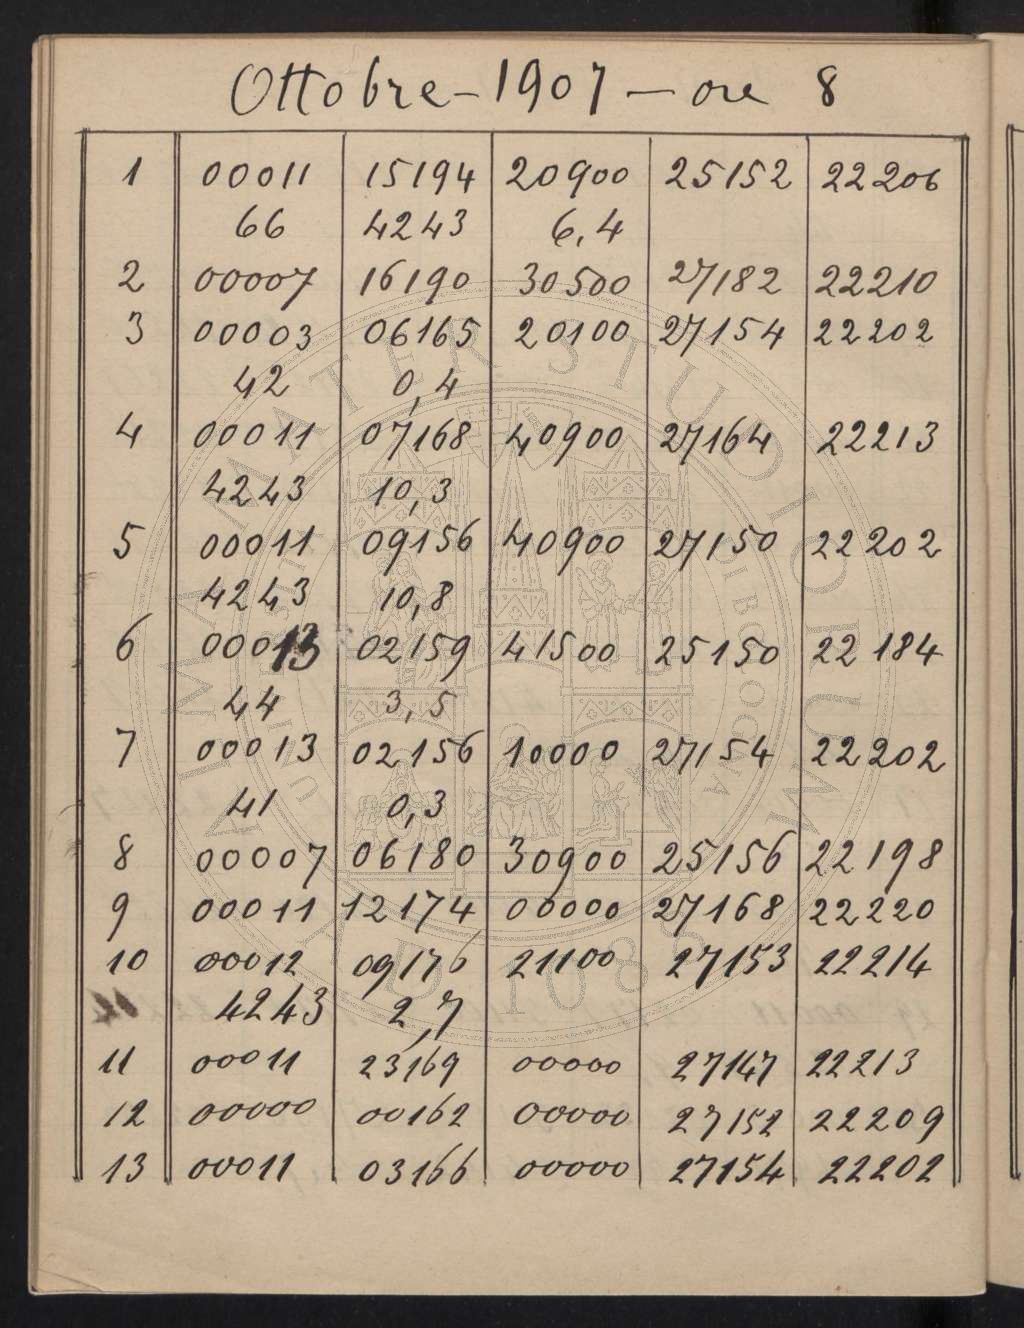 Ottobre - 1907 - ore 8
1 00011 15194 20900 25152 22206
66 4243 6,4
2 00007 16190 30500 27182 22210
3 00003 06165 20100 27154 22202
42 0,4
4 00011 07168 40900 27164 22213
4243 10,3
5 00011 09156 40900 27150 22202
4243 10,8
6 00013 02159 41500 25150 22184
44 3,5
7 00013 02156 10000 27154 22202
41 0,3
8 00007 06180 30900 25156 22198
9 00011 12174 00000 27168 22220
10 00012 09176 21100 27153 22214
4243 2,7
11 00011 23169 00000 27147 22213
12 00000 00162 00000 27152 22209
13 00011 03166 00000 27154 22202
ALMA MATER STUDIORUM
A.D. 1088